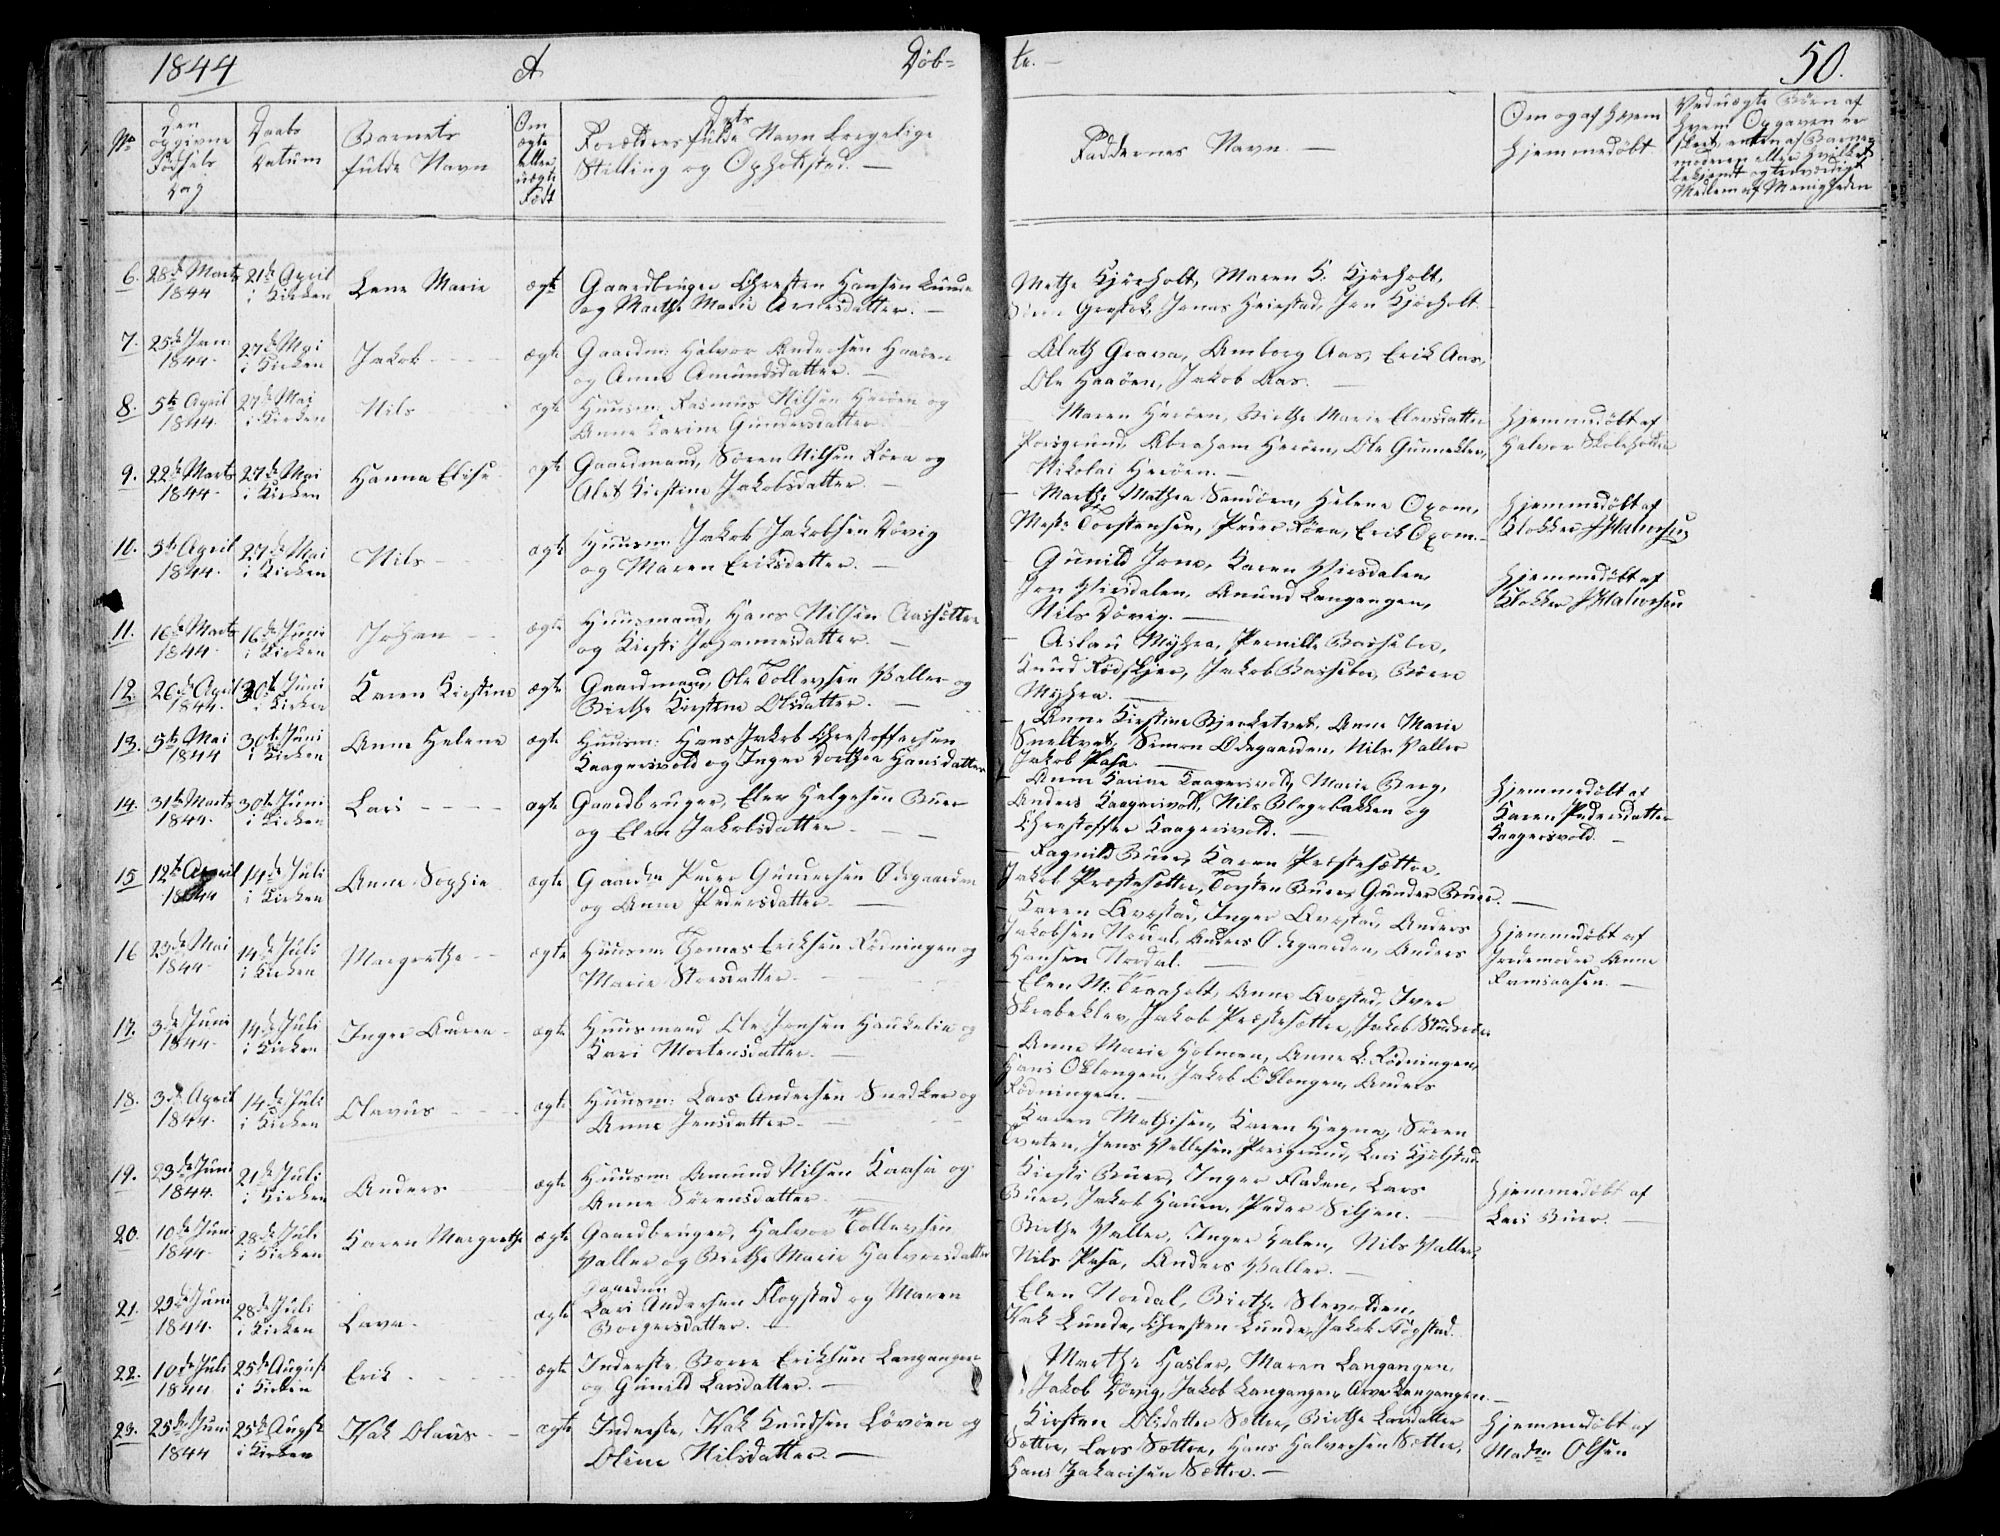 1844
A
Døb-
te.
50.
No
Den opgivne Fødsels Dag
Daabs Datum
Barnets fulde Navn
Om ægte eller uægte Født
Forældres fulde Navn borgelige
Stilling og Opholdsted.
Faddernes Navn.
Om og af hvem
hjemmedøbt.
Ved uægte Børn af
hvem Opgaven er
skeet, enten af Barne-
moderen eller hvilket
bekjendt og troværdigt
Medlem af Menigheden
6. 28de Marts 1844 21de April i Kirken Lene Marie ægte Gaardbruger Chresten Hansen Lunde
og Marthe Marie Arnesdatter.
Mathe Kjørholt, Maren K. Kjørholt,
Grastok, Jonas Heiestad, Jon Kjørholt
7. 25de Jan 1844 27de Mai i Kirken Jakob ægte Gaardm: Halvor Andersen Haaøen
og Anne Amundsdatter.
Aleth Grava, Amborg Aas, Erik Aas,
Ole Haaøen, Jakob Aas.
8. 5te April 1844. 27de Mai i Kirken Nils ægte Huusm: Rasmus Nilsen Herøen og
Anne Karine Gundersdatter
Maren Herøen, Birthe Marie Elevsdatter
Porsgrund, Abraham Herøen, Ole Gunneklev,
Nikolai Herøen.
Hjemmedøbt af
Halvor Skoleholder
9. 22de Marts 1844 27de Mai i Kirken Hanna Elise ægte Gaardmand, Søren Nilsen Røra og
Alet Kirstine Jakobsdatter.
Marthe Mathea Sandøen, Helene Oxom,
Torstensen, Peder Røra, Erik Oxom.
Hjemmedøbt af
Klokker Halvorsen
10. 5te April 1844. 27de Mai i Kirken Nils ægte Huusm: Jakob Jakobsen Døvig
og Maren Eriksdatter.
Gunild Jone, Karen Versdalen,
Jon Versdalen, Amund Langangen,
Nils Døvig.
Hjemmedøbt af
Klokker Halvorsen
11. 16de Marts 1844. 16de Juni i Kirken Johan ægte Huusmand, Hans Nilsen Aassetter
og Kirsti Johannesdatter.
Aslau Myhra, Pernille Bassebo,
Knud Rødskjer, Jakob Bassebo, Børre
Myhra.
12. 26de April 1844. 30te Juni i Kirken Karen Kirstine ægte Gaardmand, Ole Tollevsen Valler og
Birthe Kirstine Olsdatter.
Anne Kirstine Bjerketvet, Anne Marie
Sneltvet, Simon Ødegaarden, Nils Valler
Jakob Pasa.
13. 5te Mai 1844 30te Juni i Kirken Anne Helene ægte Huusm: Hans Jakob Chrestoffersen
Kaagersvold og Inger Dorthea Hansdatter
Anne Karine Kaagersvold, Marie Berg,
Anders Kaagersvold, Nils Blegebakken og
Chrestoffer Kaagersvold.
Hjemmedøbt af
Karen Pedersdatter
Kaagersvold.
14. 31te Marts 1844. 30te Juni i Kirken Lars ægte Gaardbruger, Elev Helgesen Buer
og Elen Jakobsdatter.
Ragnild Buer, Karen Præstesettre,
Jakob Præstesettre, Torsten Buer, Gunder Buer.
15 12te April 1844 14de Juli i Kirken Anne Sophie ægte Gaardm Peder Gundersen Ødegaarden
og Anne Pedersdatter.
Karen Avestad, Inger Avestad, Anders
Jakobsen Nordal, Anders Ødegaarden, Anders
Hansen Nordal.
Hjemmedøbt af
Jordemoder Anne
16 23de Mai 1844 14de Juli i Kirken Margrethe ægte Huusm: Thomas Eriksen Rødningen og
Marie Nersdatter.
Elen M: Traaholt, Anne Avestad, Iver
Skrabeklev, Jakob Præstesettre, Jakob
17. 3de Juni 1844. 14de Juli i Kirken Inger Aurea ægte Huusmand Ole Jensen Haukelia og
Kari Mortensdatter.
Anne Marie Holmen, Anne L: Rødningen,
Hans Oklongen, Jakob Oklongen, Anders
Rødningen.
18. 3de April 1844. 14de Juli i Kirken Olavus ægte Huusm: Lars Andersen Snedker og
Anne Jensdatter.
Karen Mathisen, Karen Hegna, Søren
Tveten, Jens Porsgrund, Lars Kjølstad
19. 23de Juni 1844. 21de Juli i Kirken Anders ægte Huusm: Amund Nilsen Kaasa og
Anne Sørensdatter.
Kirsti Buer, Inger Fladen, Lars
Buer, Jakob Hauen, Peder Siljen.
Hjemmedøbt af
Lars Buer.
20. 10de Juni 1844. 28de Juli i Kirken Karen Margrethe ægte Gaardbruger, Halvor Tollevsen
Valler og Birthe Marie Halvorsdatter
Birthe Valler, Inger Halen, Nils Valler,
Nils Pasa, Anders Valler.
21. 29de Juni 1844. 28de Juli i Kirken Lava. ægte Gaardm:
Lars Andersen Flogstad og Maren
Borgersdatter.
Elen Nordal, Birthe Slevolden,
Isak Lunde, Chresten Lunde, Jakob Flogstad.
22. 10de Juli 1844 25de August i Kirken Erik ægte Inderste Børre Eriksen Langangen
og Gunild Larsdatter.
Marthe Hasler, Maren Langangen,
Jakob Døvig, Jakob Langangen, Arve Langangen.
23. 25de Juni 1844 25de August i Kirken Isak Olaus ægte Inderste, Isak Knudsen Løvøen og
Oline Nilsdatter.
Kirsten Olsdatter Settre, Birthe Larsdatter
Settre, Lars Settre, Hans Halvorsen Settre,
Hans Zakarisen Settre.
Hjemmedøbt af
Madm Olsen